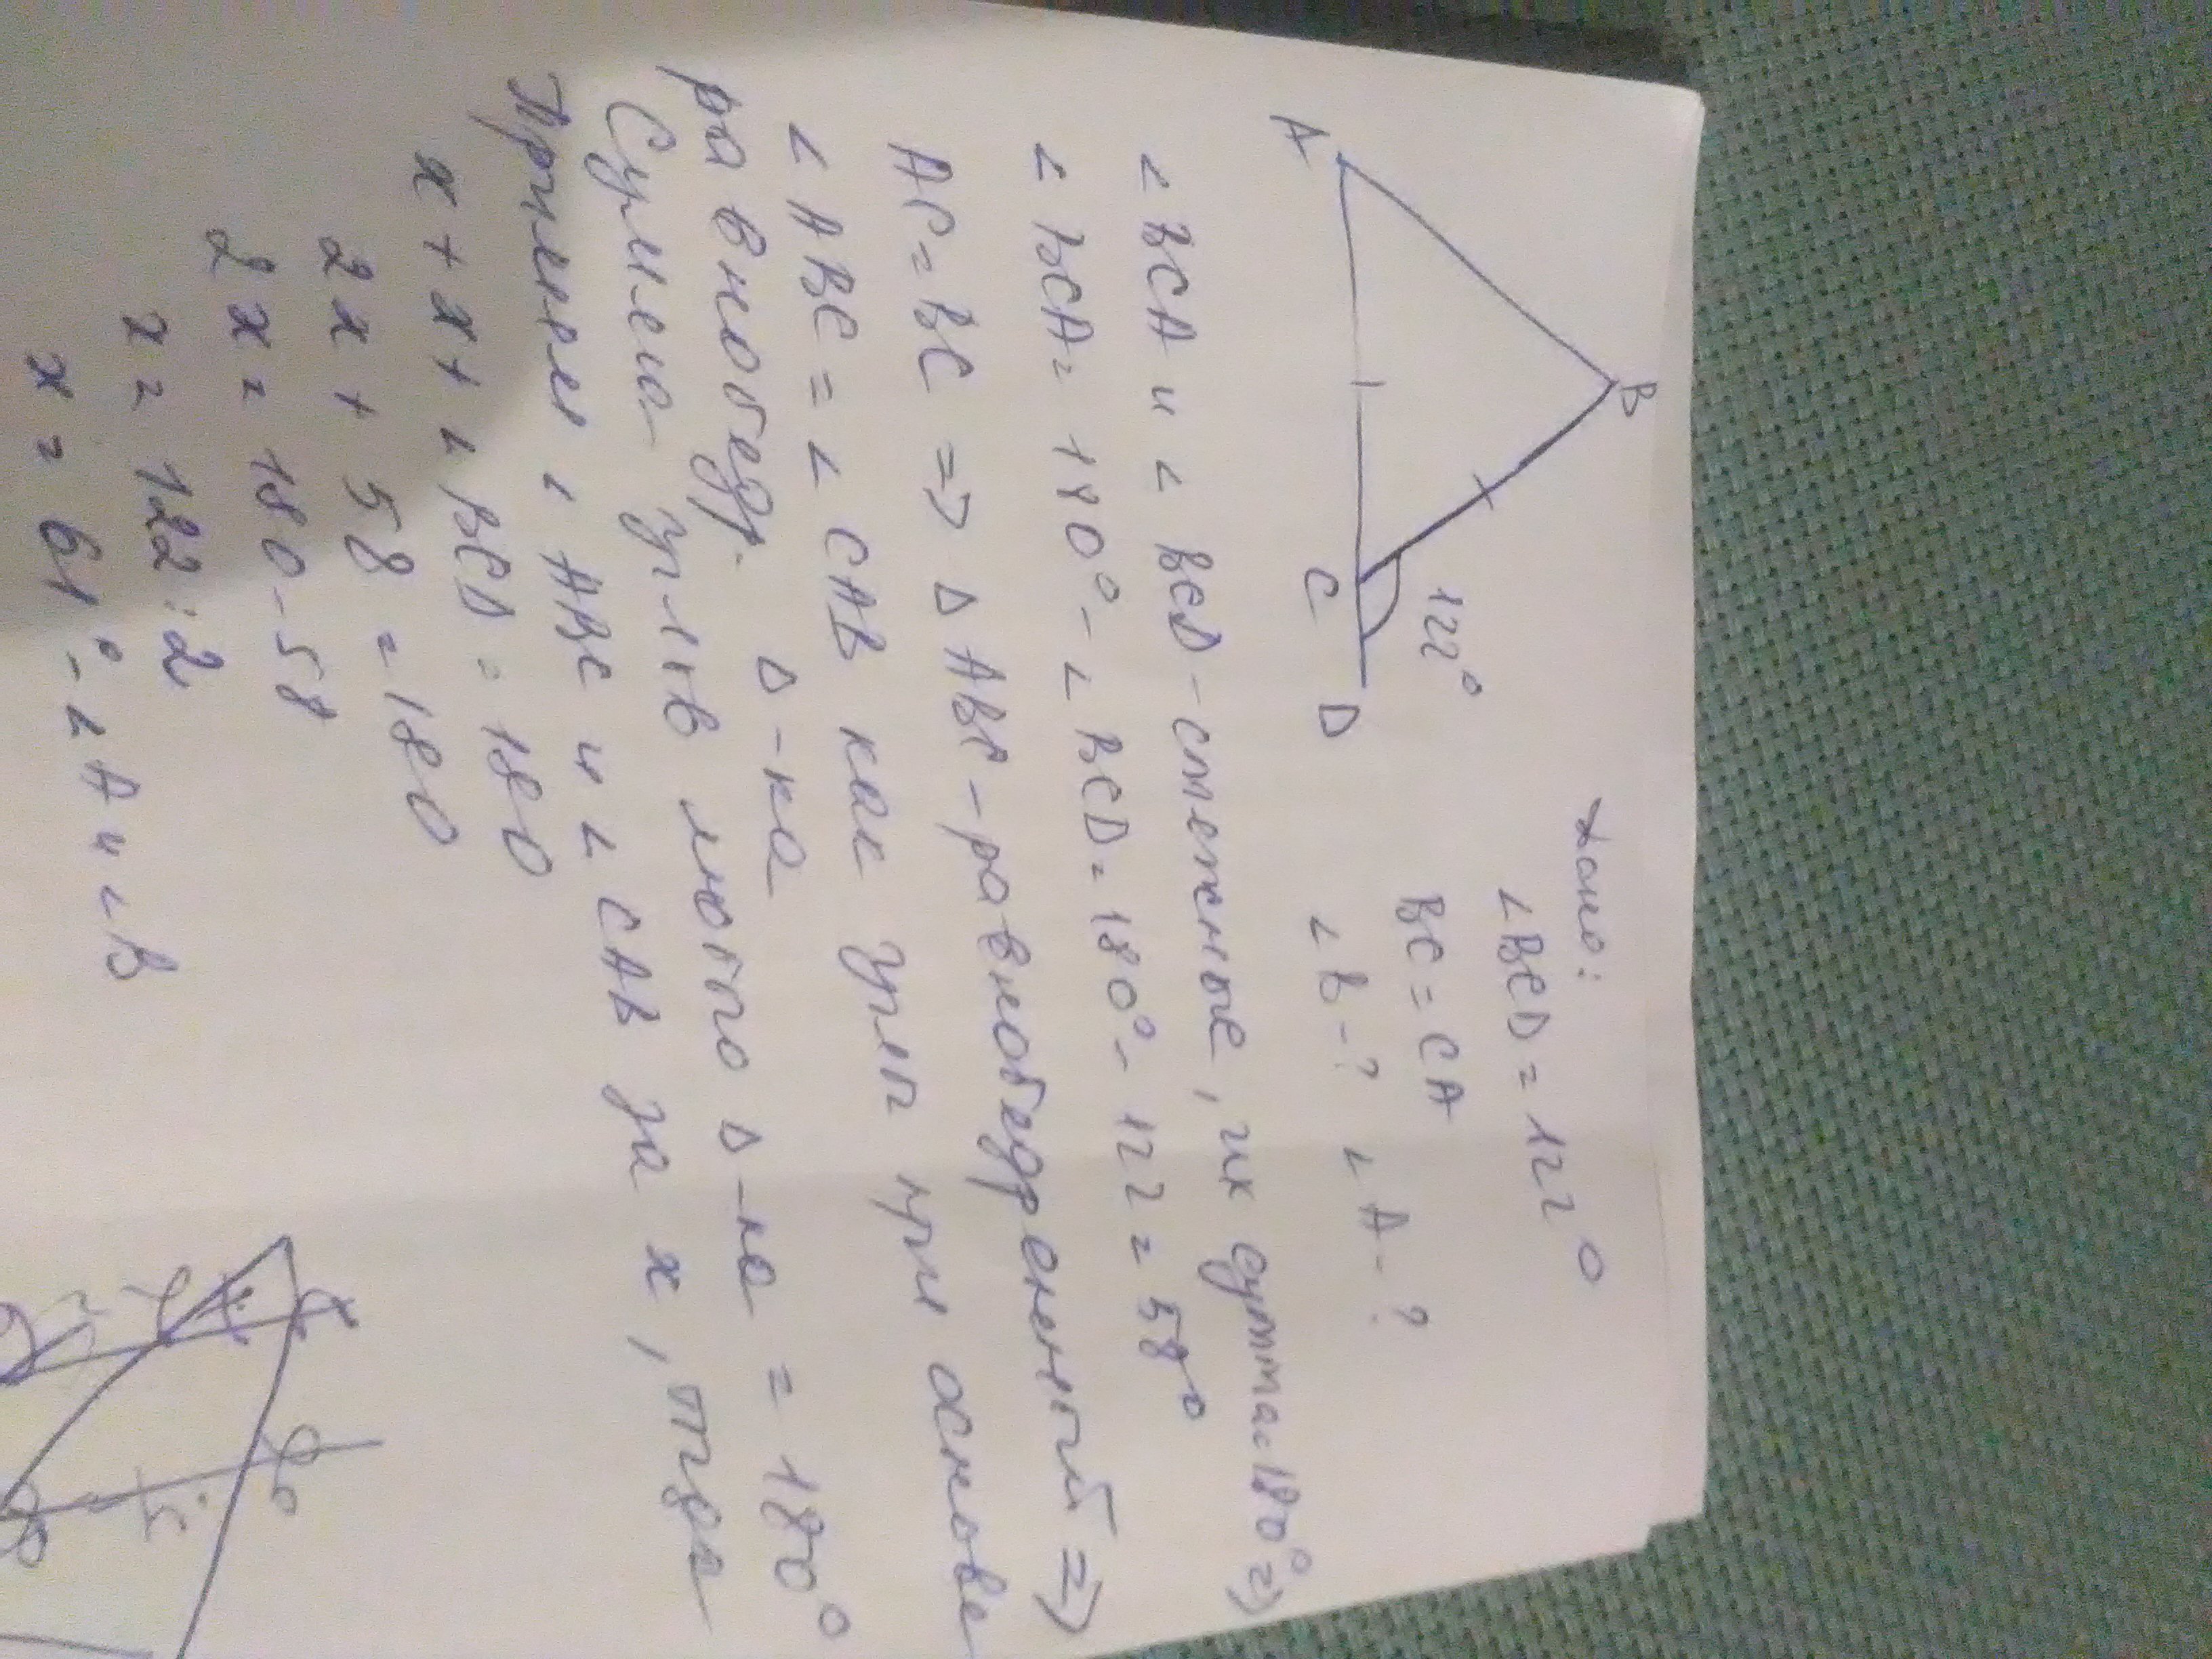 Дано:
∠BCD = 122°
BC = CA
∠B - ? ∠A - ?
A
B
C
D
122°
∠BCA и ∠BCD - смежные, их сумма = 180° =>
∠BCA = 180° - ∠BCD = 180° - 122 = 58°
AC = BC => ΔABC - равнобедренный =>
∠ABC = ∠CAB как углы при основе
равнобедр. Δ-ка
Сумма углов любого Δ-ка = 180°
Примем ∠ABC и ∠CAB за x, тогда
x + x + ∠BCD = 180
2x + 58 = 180
2x = 180 - 58
x = 122 : 2
x = 61° - ∠A и ∠B